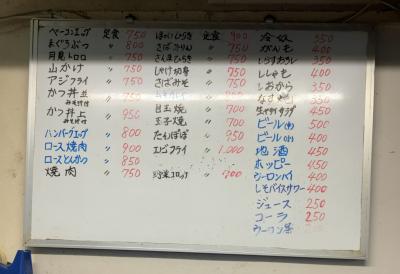 ベーコンエッグ 定食 750
まぐろぶつ 〃 800
月見トロロ 〃 750
山かけ 〃 750
アジフライ 〃 750
かつ丼 並 みそ汁付 950
かつ丼 上 みそ汁付 950
ハンバーグエッグ 〃 800
ロース焼肉 〃 900
ロースとんかつ 〃 850
焼肉 〃 750
ほっけひらき 定食 900
さばみりん 〃 750
さんまひらき 〃 750
しゃけ切身 〃 750
さばみそ 〃 750
目玉焼 〃 700
玉子焼 〃 700
〃 950
エビフライ 〃 1,000
野菜コロッケ 〃 700
冷奴 350
がんも 400
しらすおろし 350
ししゃも 400
しおから 350
なす 350
生野菜サラダ 450
ビール(中) 500
ビール(小) 400
地酒 450
ホッピー 450
ウーロンハイ 400
しそバイスサワー 400
ジュース 250
コーラ 250
ウーロン茶